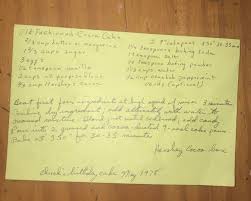 Old Fashioned Cocoa Cake
2/3 cup butter or margarine
1 2/3 cups sugar
3 eggs
teaspoon vanilla
2 cups all purpose flour
2/3 cup Hershey's Cocoa
2 9" cake pans 350° 30-35 min
1 1/4 teaspoons baking soda
1 teaspoon salt
teaspoon baking powder
1 1/3 cups water
cup crushed peppermint
candy (optional)
Beat first four ingredients at high speed of mixer 3 minutes
Combine dry ingredients; add alternately with water to
creamed mixture. Blend just until combined; add candy.
Pour into 2 greased and cocoa-dusted 9-inch cake pans
Bake at 350° for 30-35 minutes.
Hershey Cocoa box
birthday cake May 1978